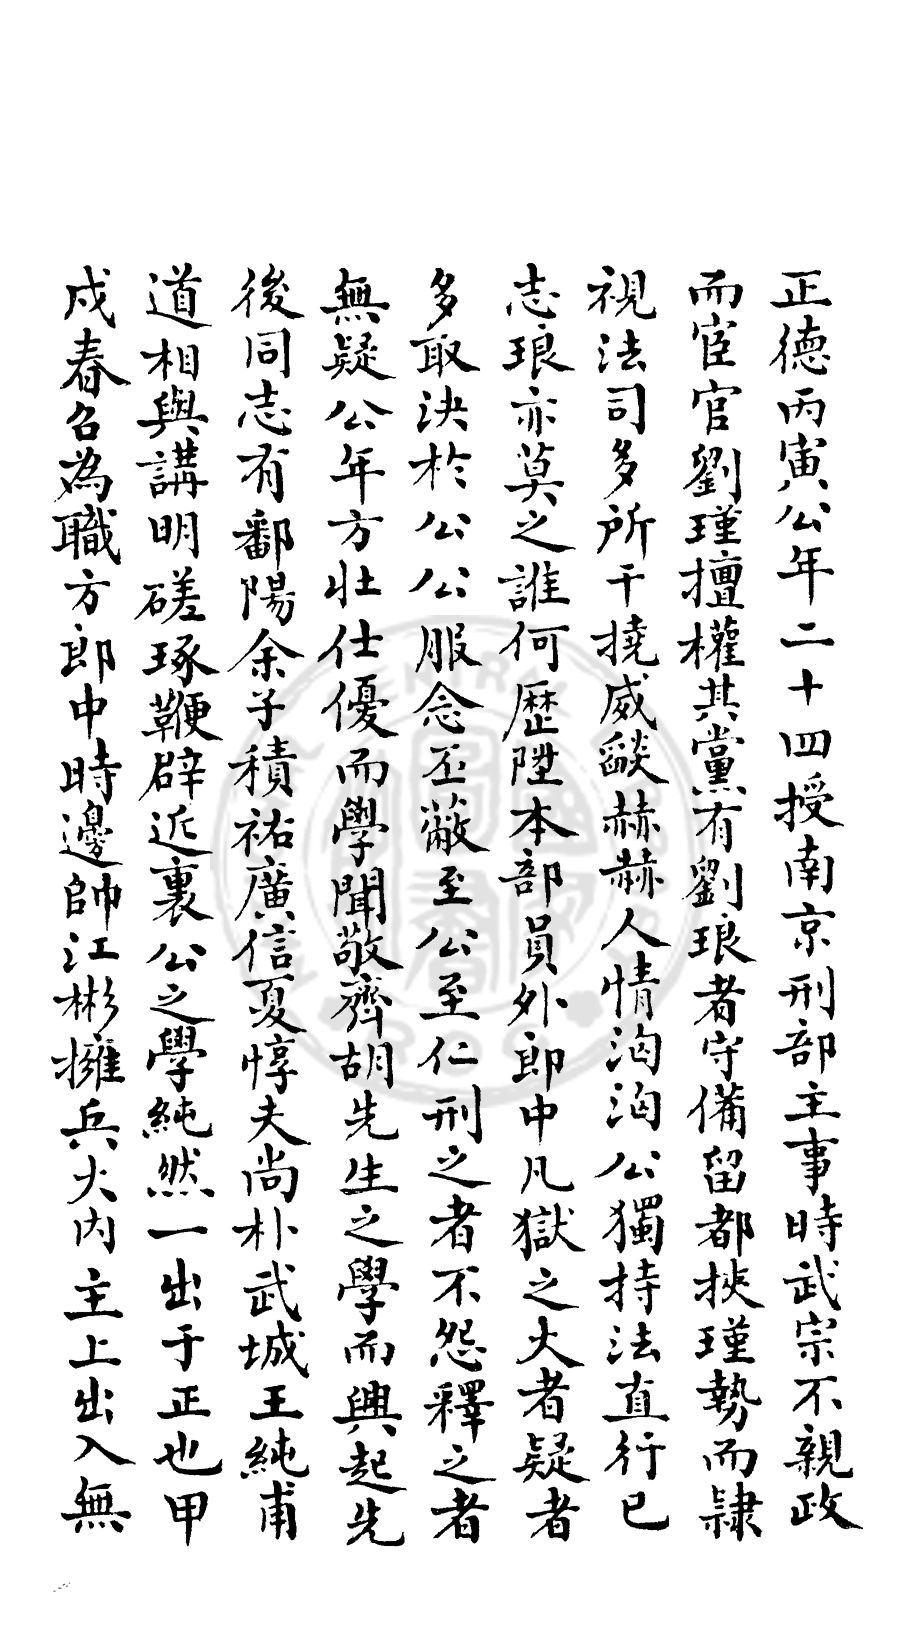 正德丙寅公年二十四授南京刑部主事時武宗不親政
而宦官劉瑾擅權其黨有劉琅者守備留都挾瑾勢而隷
視法司多所干撓威燄赫赫人情洶洶公獨持法直行已
志琅亦莫之誰何歷陞本部員外郎中凡獄之大者疑者
多取決於公公服念丕蔽至公至仁刑之者不怨釋之者
無疑公年方壯仕優而學聞敬齊胡先生之學而興起先
後同志有鄱陽余子積祐廣信夏惇夫尚朴武城王純甫
道相與講明磋琢鞭辟近裏公之學純然一出于正也甲
戌春召為職方郎中時邊帥江彬擁兵大內主上出入無